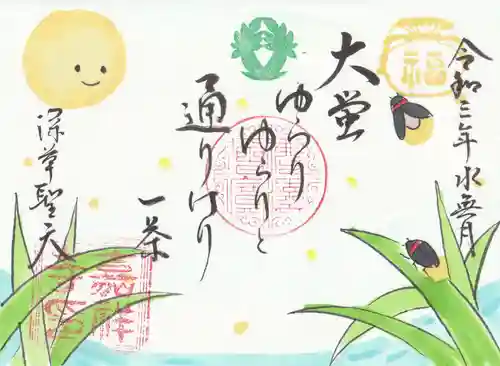 令和三年水無月
大蛍
ゆらり
ゆらりと
通りけり
一茶
深草聖天
福